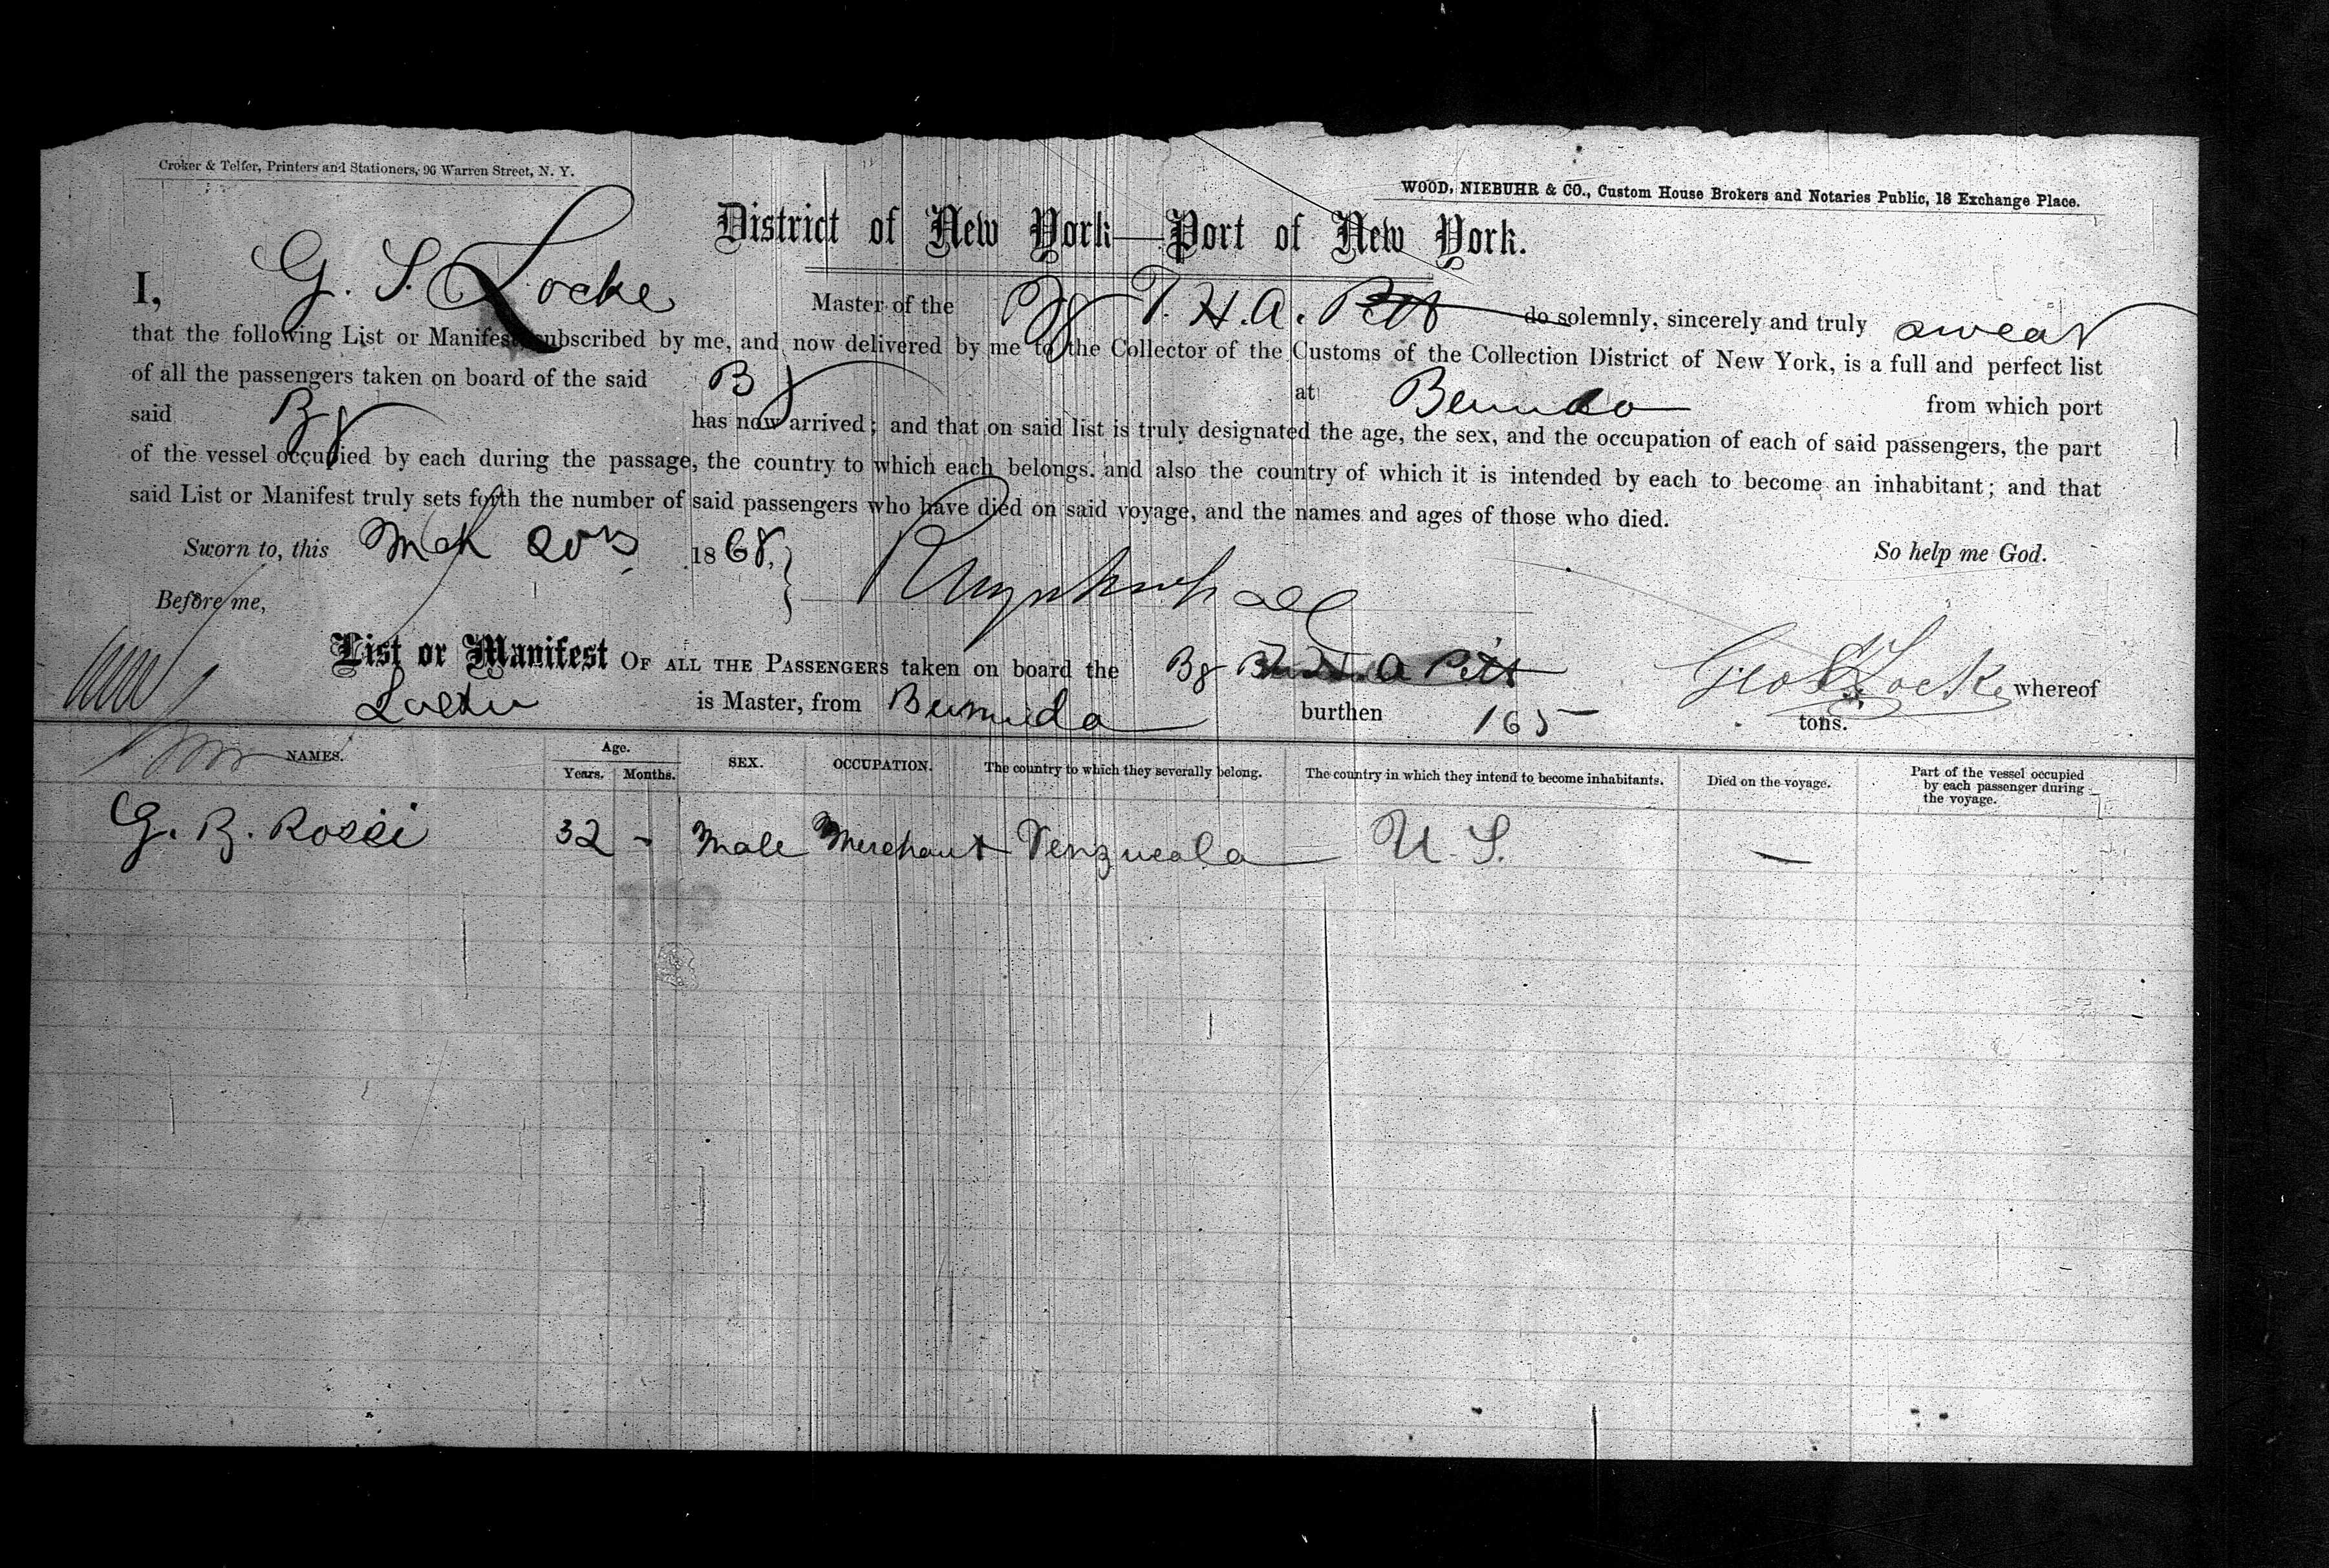 Croker & Telfer, Printers and Stationers, 96 Warren Street, N. Y.
WOOD, NIEBUHR & CO., Custom House Brokers and Notaries Public, 18 Exchange Place.
District of New York—Port of New York.
I, G. S. Locke Master of the Bg T. H. A. Pitt do solemnly, sincerely and truly swear
that the following List or Manifest subscribed by me, and now delivered by me to the Collector of the Customs of the Collection District of New York, is a full and perfect list
of all the passengers taken on board of the said Bg at Bermuda from which port
said Bg has now arrived; and that on said list is truly designated the age, the sex, and the occupation of each of said passengers, the part
of the vessel occupied by each during the passage, the country to which each belongs, and also the country of which it is intended by each to become an inhabitant; and that
said List or Manifest truly sets forth the number of said passengers who have died on said voyage, and the names and ages of those who died.
Sworn to, this Mch 20th 1868, So help me God.
Before me,
List or Manifest OF ALL THE PASSENGERS taken on board the Bg A Pitt Geo S Locke whereof
is Master, from Bermuda burthen 165 tons.
NAMES. Age. Years. Months. SEX. OCCUPATION. The country to which they severally belong. The country in which they intend to become inhabitants. Died on the voyage. Part of the vessel occupied by each passenger during the voyage.
G. B. Rossi 32 - Male Merchant Venzueala U. S. —